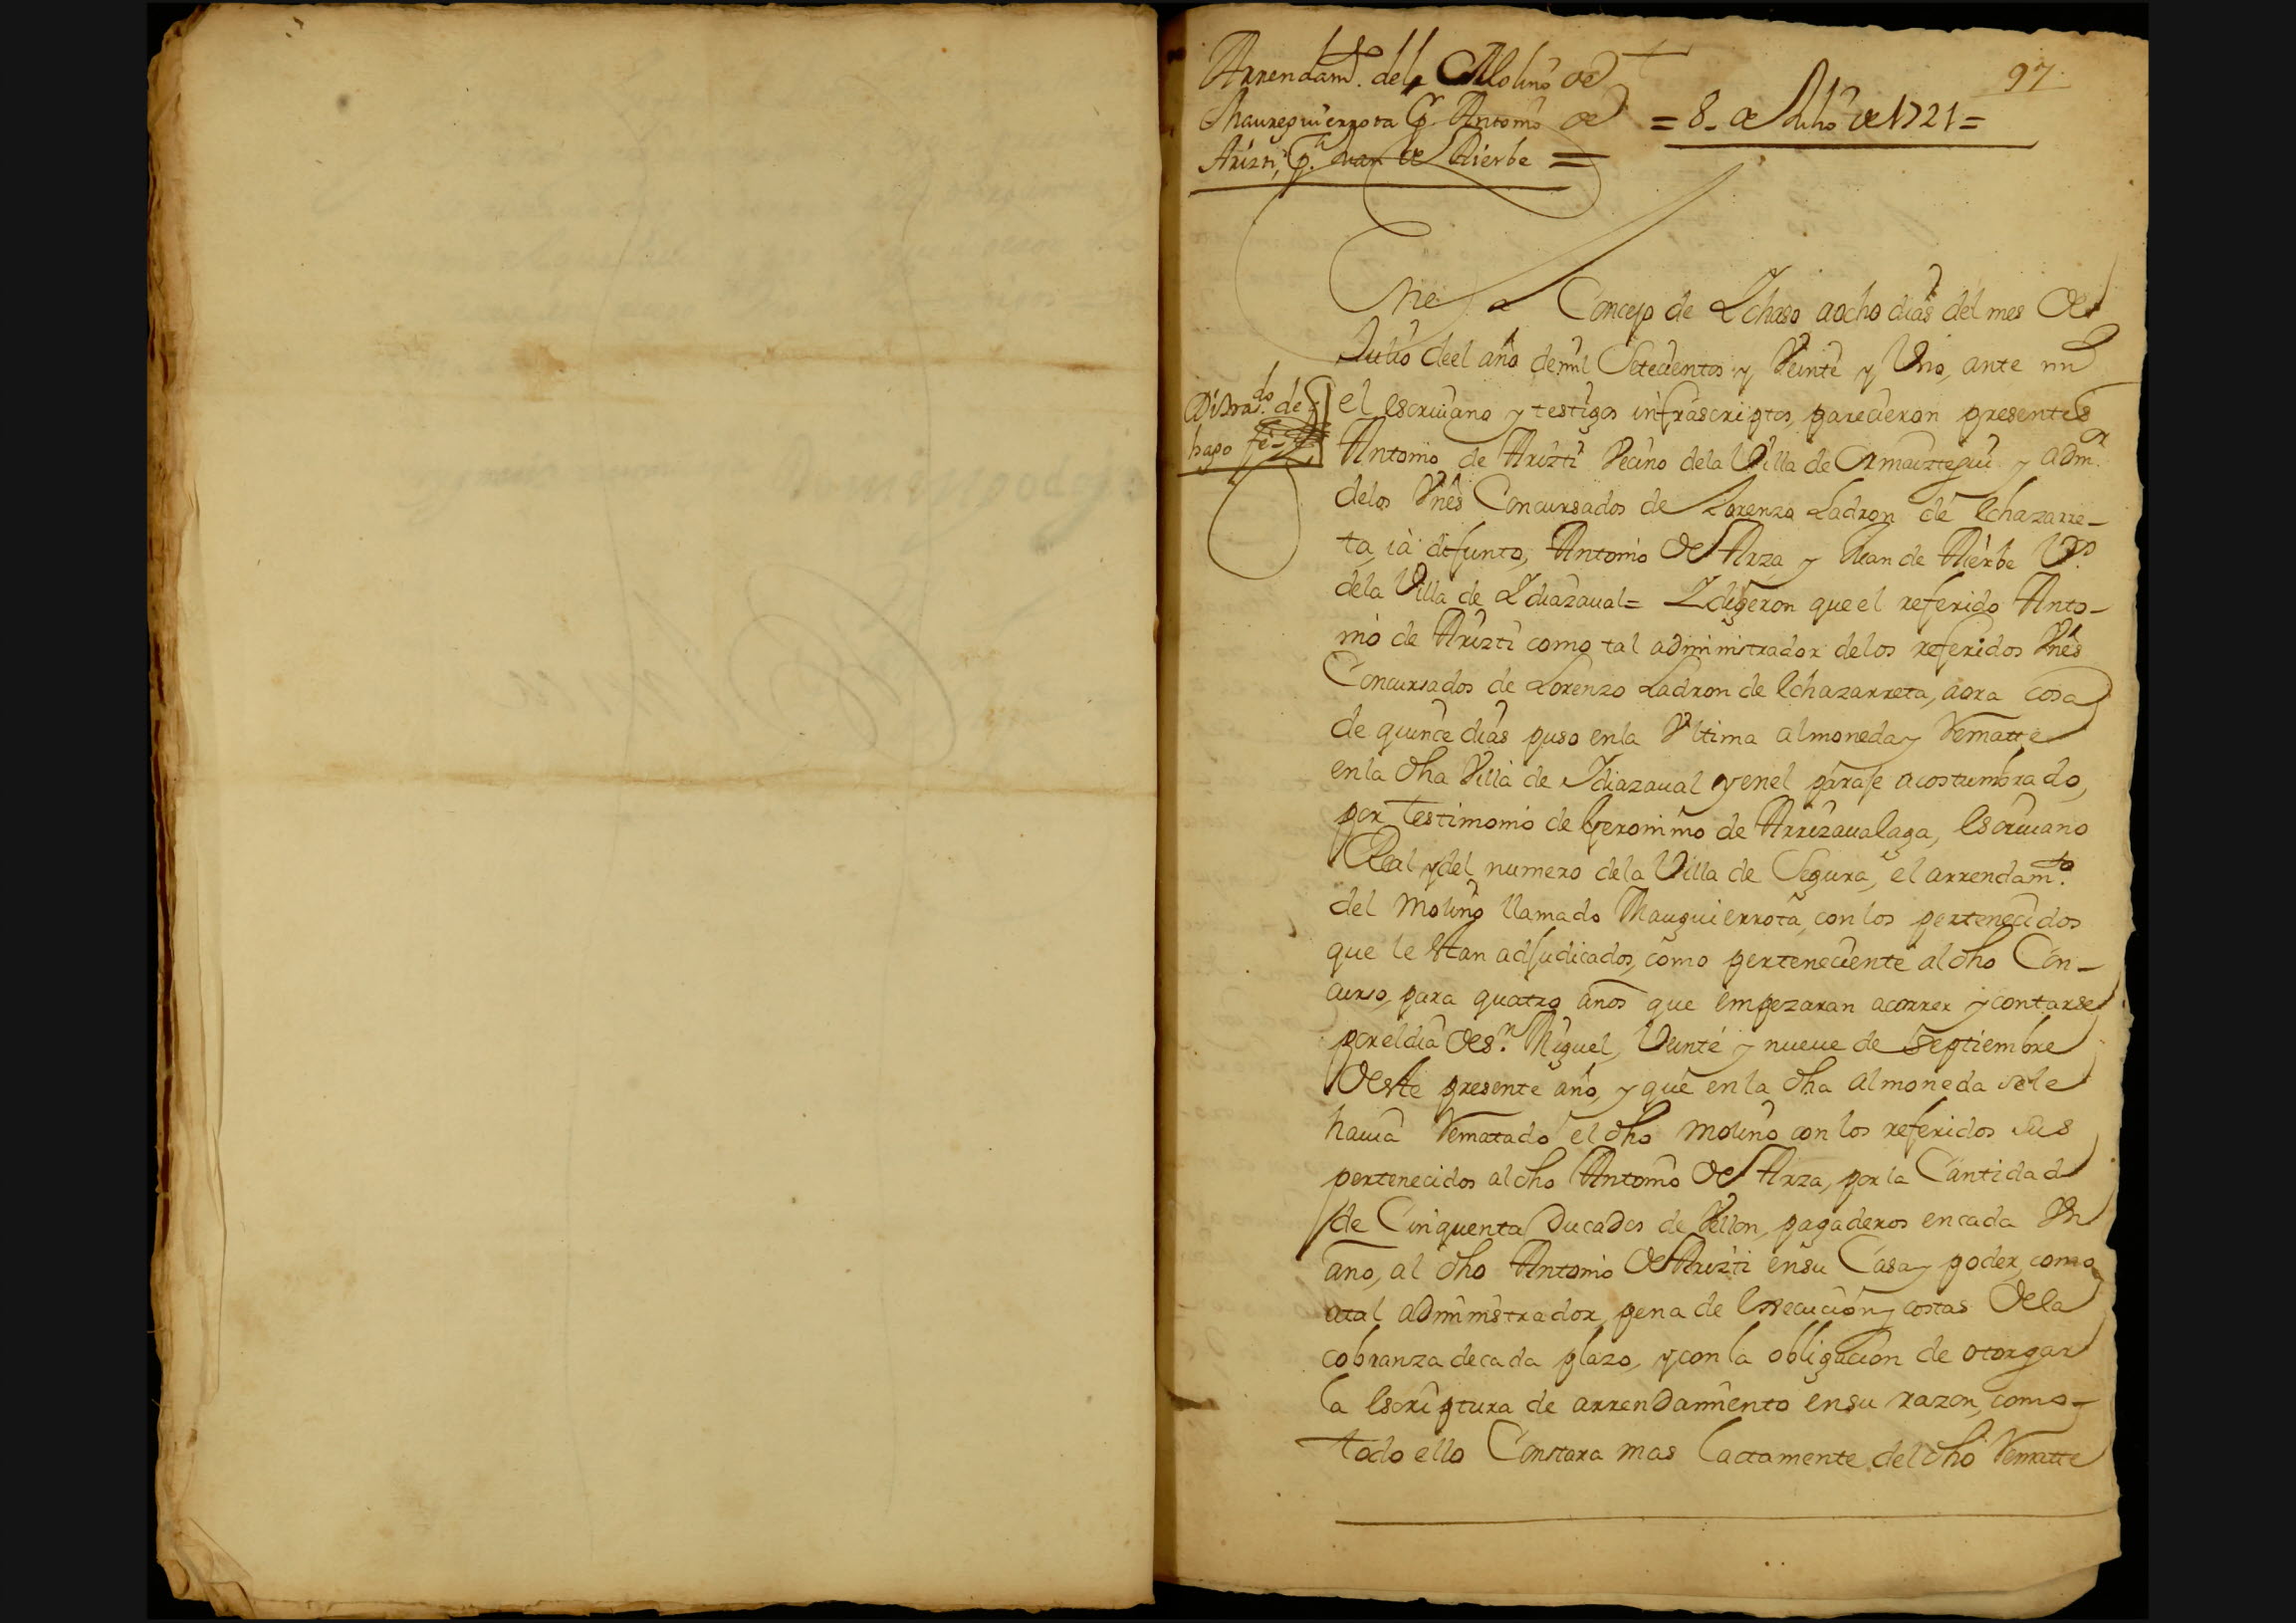 97
Arrendam.to del Molino de
Maureguierrota p.r Antonio de
Arizti, p.a Juan de Aierbe =
= 8. de Julio de 1721 =
En el Concejo de Ichaso aocho dias del mes de
Julio deel año demil Setecientos y Veinte y Uno, ante mi
el escriuano y testigos infrascriptos, parecieron presentes
Librado. de q
hago fe
Antonio de Arizti Vecino dela Villa de Ormaiztegui y adm.r
delos Vnes Concursados de Lorenzo Ladron de Echazarre-
ta, ia difunto, Antonio de Arza y Juan de Aierbe V.os
dela Villa de Idiazaual = I digeron que el referido Anto-
nio de Arizti como tal administrador delos referidos Vnes
Concursados de Lorenzo Ladron de Echazarreta, aora cosa
de quince dias puso enla Vltima almoneda y Rematte
enla dha Villa de Idiazaual y enel paraje acostumbrado,
por testimonio de Geronimo de Arrizaualaga, Escriuano
Real y del numero dela Villa de Segura, el arrendam.to
del Molino llamado Mauguierrota, con los pertenecidos
que le estan adjudicados, como perteneciente al dho Con-
curso, para quatro años que empezaran acorrer y contarse
por eldia de S.n Miguel, Veinte y nueue de Septiembre
deste presente año, y que en la dha almoneda sele
hauia Rematado el dho Molino con los referidos sus
pertenecidos al dho Antonio de Arza, por la Cantidad
de Cinquenta Ducados de Vellon, pagaderos encada Vn
año, al dho Antonio de Arizti ensu Casa y poder, como
atal administrador, pena de Execucion y costas dela
cobranza decada plazo, y con la obligacion de otorgar
la Escriptura de arrendamiento ensu razon, como
todo ello Constara mas lactamente del dho Rematte